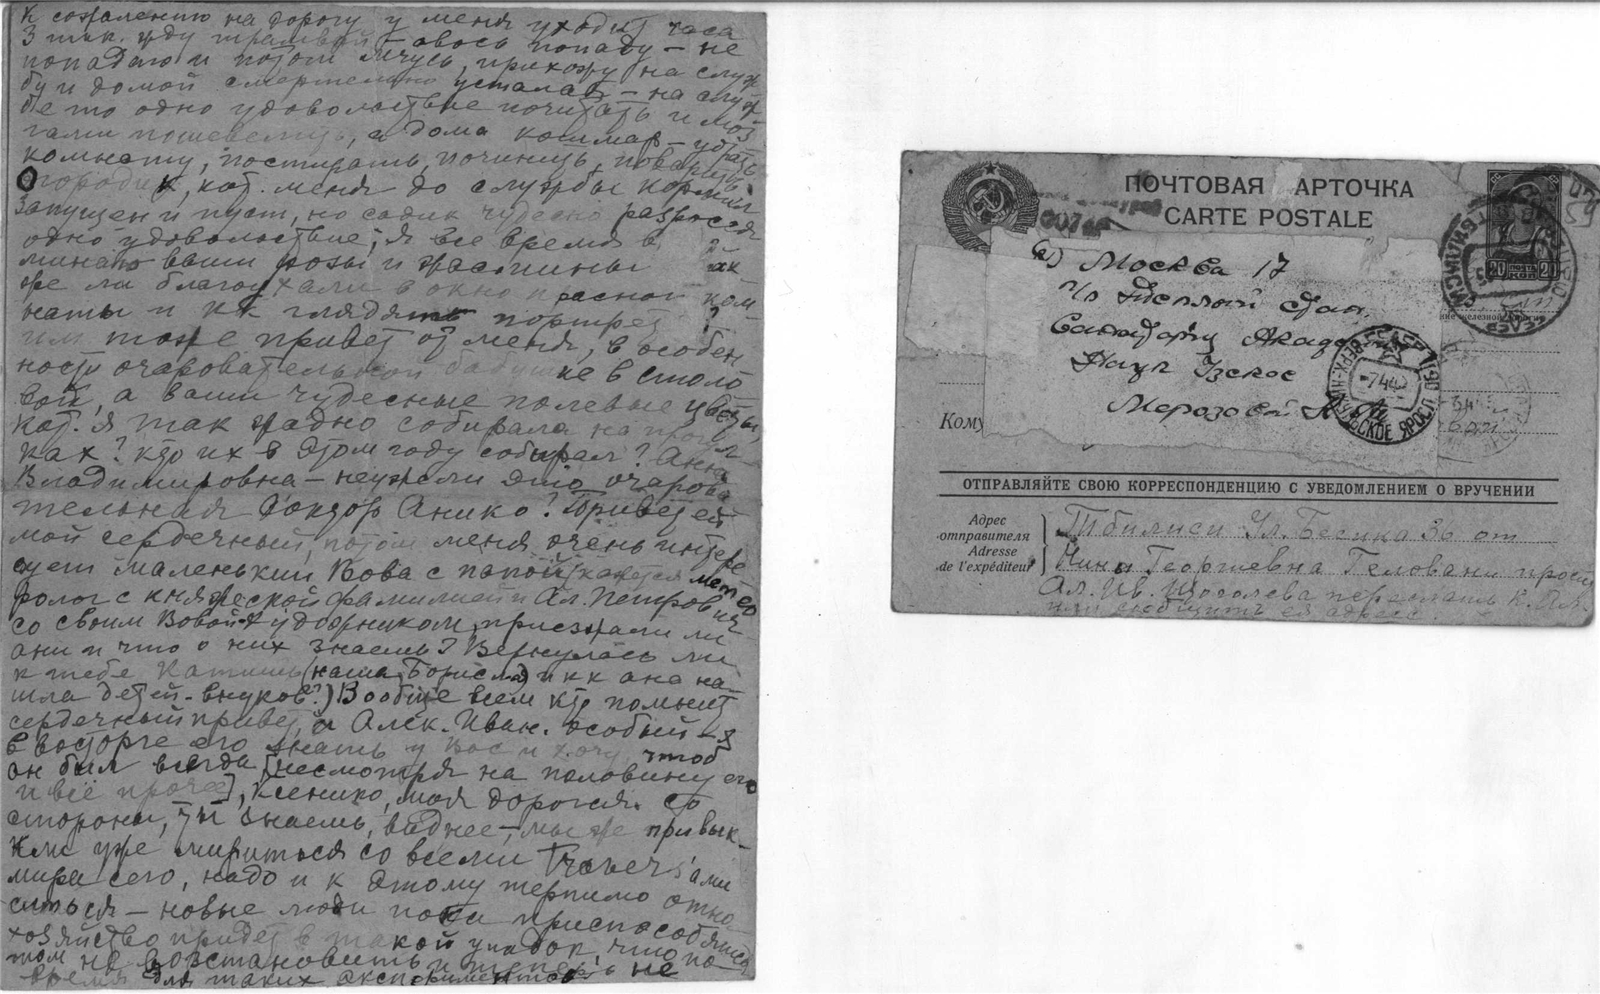 К сожалению на дорогу у меня уходит часа
3 так. жду трамвай авось попаду — не
попадаю и потом мчусь, прихожу на служ
бу и домой смертельно усталая — на служ
бе то одно удовольствие почитать и моз
гами пошевелить, а дома кошмар — убрать
комнату, постирать, починить, поварить.
Огородик, кот. меня до службы кормил
запущен и пуст, но садик чудесно разросся
одно удовольствие; я все время в
минаю ваши розы и жасмины ? ак
же ли благоухали в окно красной ком
наты и как глядят портрет ?
им тоже привет от меня, в особен
ности очаровательной бабушке в столо
вой, а ваши чудесные полевые цветы,
кот. я так жадно собирала на прогул
ках? кто их в этом году собирал? Анна
Владимировна — неужели это очарова
тельная доктор Анико? Привет ей
мой сердечный, потом меня очень интере
сует маленький Вова с папой (кажется метео
ролог с княжеской фамилией и Ал. Петрович
со своим Вовой и ударником, приезжали ли
они и что о них знаешь? Вернулась ли
к тебе Катишь (наша Борисла) и кк она на
шла детей-внуков?) Вообще всем кто помнит
сердечный привет, а Алек. Иван. особый — я
в восторге его знать у Вас и хочу чтоб
он был всегда [несмотря на половину его
и всё прочее], Ксенико, моя дорогая. Со
стороны, ты знаешь, виднее, — мы же привык
кли уже мириться со всеми
мира сего, надо и к этому терпимо отно
ситься — новые люди пока приспособятся
хозяйство придет в такой упадок, что по
том не восстановить и теперь не
время для таких экспериментов
ПОЧТОВАЯ АРТОЧКА
CARTE POSTALE
20 ПОЧТА КОП 20
Москва 17
п/о Теплый Стан
Санаторий Академии
Наук Узское
Морозовой К. Ал.
Кому
ОТПРАВЛЯЙТЕ СВОЮ КОРРЕСПОНДЕНЦИЮ С УВЕДОМЛЕНИЕМ О ВРУЧЕНИИ
Адрес
отправителя
Adresse
de l'expéditeur
Тбилиси Ул. Бесика 36 от
Нины Георгиевна Геловани просит
Ал. Ив. Щоголева переслать К. Ал.
или сообщить ея адресс.